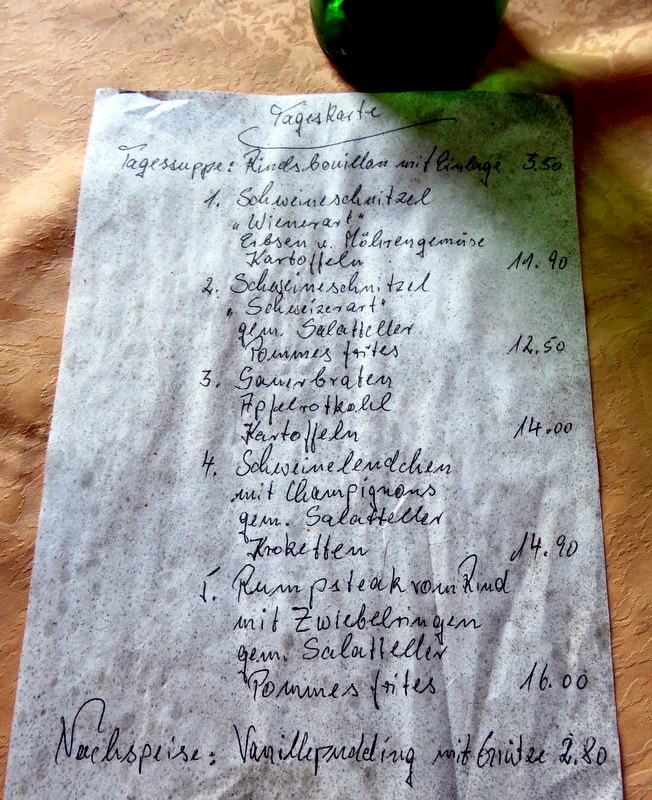 Tageskarte
Tagessuppe: Rindsbouillon mit Einlage 3.50
1. Schweineschnitzel
"Wienerart"
Erbsen u. Möhrengemüse
Kartoffeln 11.90
2. Schweineschnitzel
"Schweizerart"
gem. Salatteller
Pommes frites 12.50
3. Sauerbraten
Apfelrotkohl
Kartoffeln 14.00
4. Schweinelendchen
mit Champignons
gem. Salatteller
Kroketten 14.90
5. Rumpsteak vom Rind
mit Zwiebelringen
gem. Salatteller
Pommes frites 16.00
Nachspeise: Vanillepudding mit Grütze 2.80